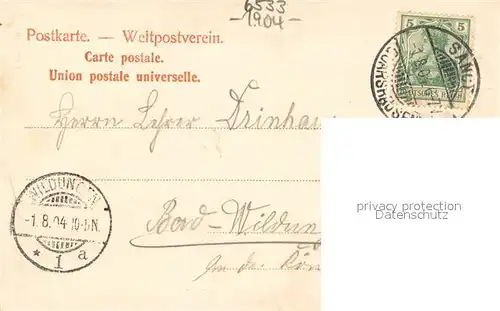 6533
-1904-
Postkarte. — Weltpostverein.
Carte postale.
Union postale universelle.
5 5
DEUTSCHES REICH
SANG
Herrn Lehrer Drinhau
privacy protection
Datenschutz
WILDUNGEN
-1.8.04 10-11N.
* 1 a
Bad-Wildun